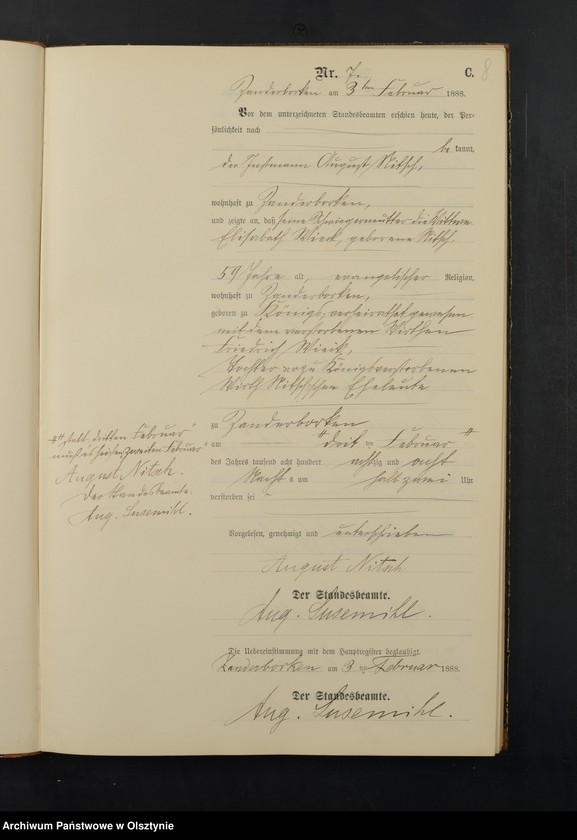 Nr. 7.
C.
8
Zanderborken am 3ten Februar 1888.
Vor dem unterzeichneten Standesbeamten erschien heute, der Per-
sönlichkeit nach
be kannt,
der Instmann August Nitsch,
wohnhaft zu Zanderborken,
und zeigte an, daß seine Schwiegermutter die Wittwe
Elisabeth Wieck, geborene Nitsch,
59 Jahre alt, evangelischer Religion,
wohnhaft zu Zanderborken,
geboren zu Königs, verheirathet gewesen
mit dem verstorbenen Wirthen
Friedrich Wieck,
Tochter der zu Königs verstorbenen
Wirth Nitsch'schen Eheleute
zu Zanderborken
am "dritten Februar"
des Jahres tausend acht hundert achtzig und acht
Nachts um halb zwei Uhr
verstorben sei
"Statt "dritten Februar"
muß es heißen "zweiten Februar"
August Nitsch.
Der Standesbeamte.
Aug. Susemihl.
Vorgelesen, genehmigt und unterschrieben
August Nitsch
Der Standesbeamte.
Aug. Susemihl.
Die Uebereinstimmung mit dem Hauptregister beglaubigt.
Zanderborken am 3ten Februar 1888.
Der Standesbeamte.
Aug. Susemihl.
Archiwum Państwowe w Olsztynie